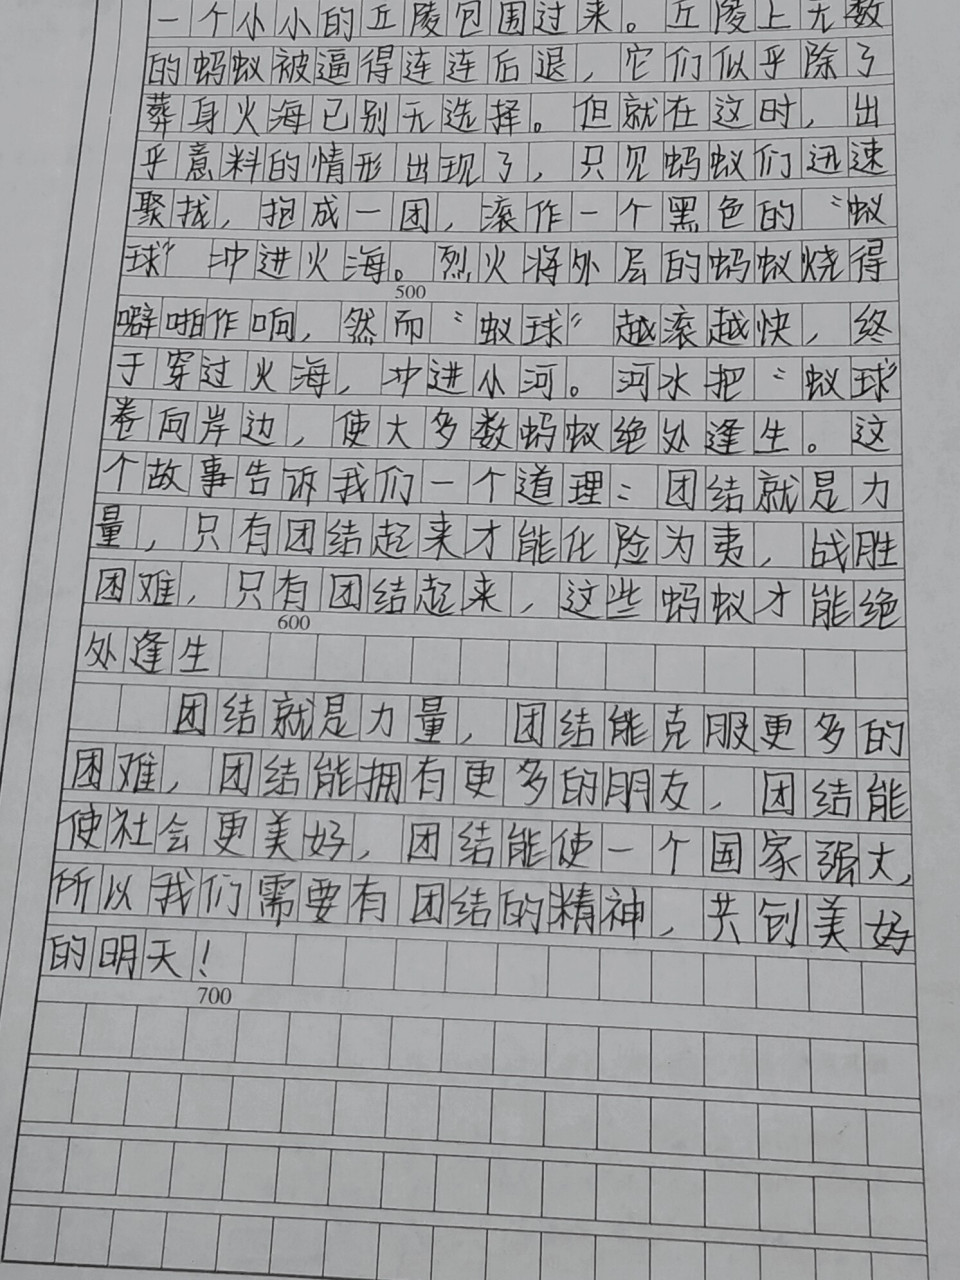 一个小小的丘陵包围过来。丘陵上无数
的蚂蚁被逼得连连后退，它们似乎除了
葬身火海已别无选择。但就在这时，出
乎意料的情形出现了，只见蚂蚁们迅速
聚拢，抱成一团，滚作一个黑色的“蚁
球”冲进火海。烈火将外层的蚂蚁烧得
500
噼啪作响，然而“蚁球”越滚越快，终
于穿过火海，冲进小河。河水把“蚁球”
卷向岸边，使大多数蚂蚁绝处逢生。这
个故事告诉我们一个道理：团结就是力
量，只有团结起来才能化险为夷，战胜
困难，只有团结起来，这些蚂蚁才能绝
600
处逢生
团结就是力量，团结能克服更多的
困难，团结能拥有更多的朋友，团结能
使社会更美好，团结能使一个国家强大，
所以我们需要有团结的精神，共创美好
的明天！
700